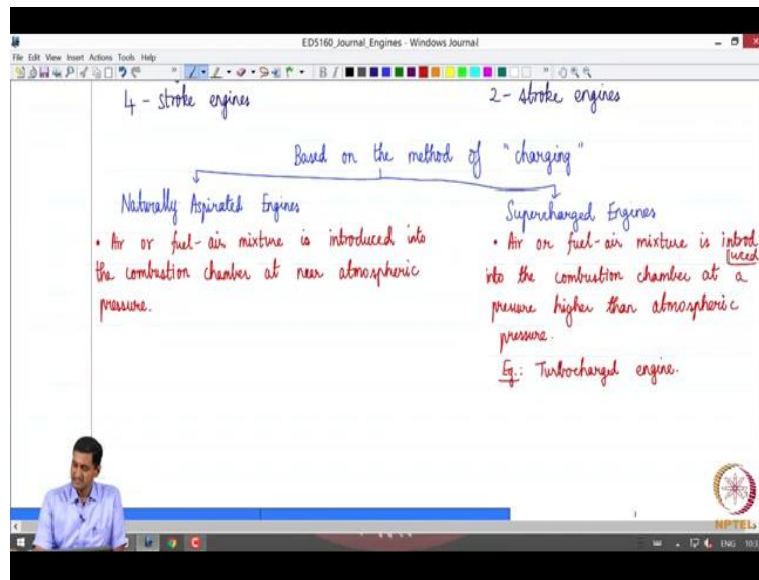 ED5160_Journal_Engines - Windows Journal
File Edit View Insert Actions Tools Help
4 - stroke engines
2 - stroke engines
Based on the method of "charging"
Naturally Aspirated Engines
• Air or fuel-air mixture is introduced into
the combustion chamber at near atmospheric
pressure.
Supercharged Engines
• Air or fuel-air mixture is introd
uced
into the combustion chamber at a
pressure higher than atmospheric
pressure.
Eg.: Turbocharged engine.
NPTEL
ENG